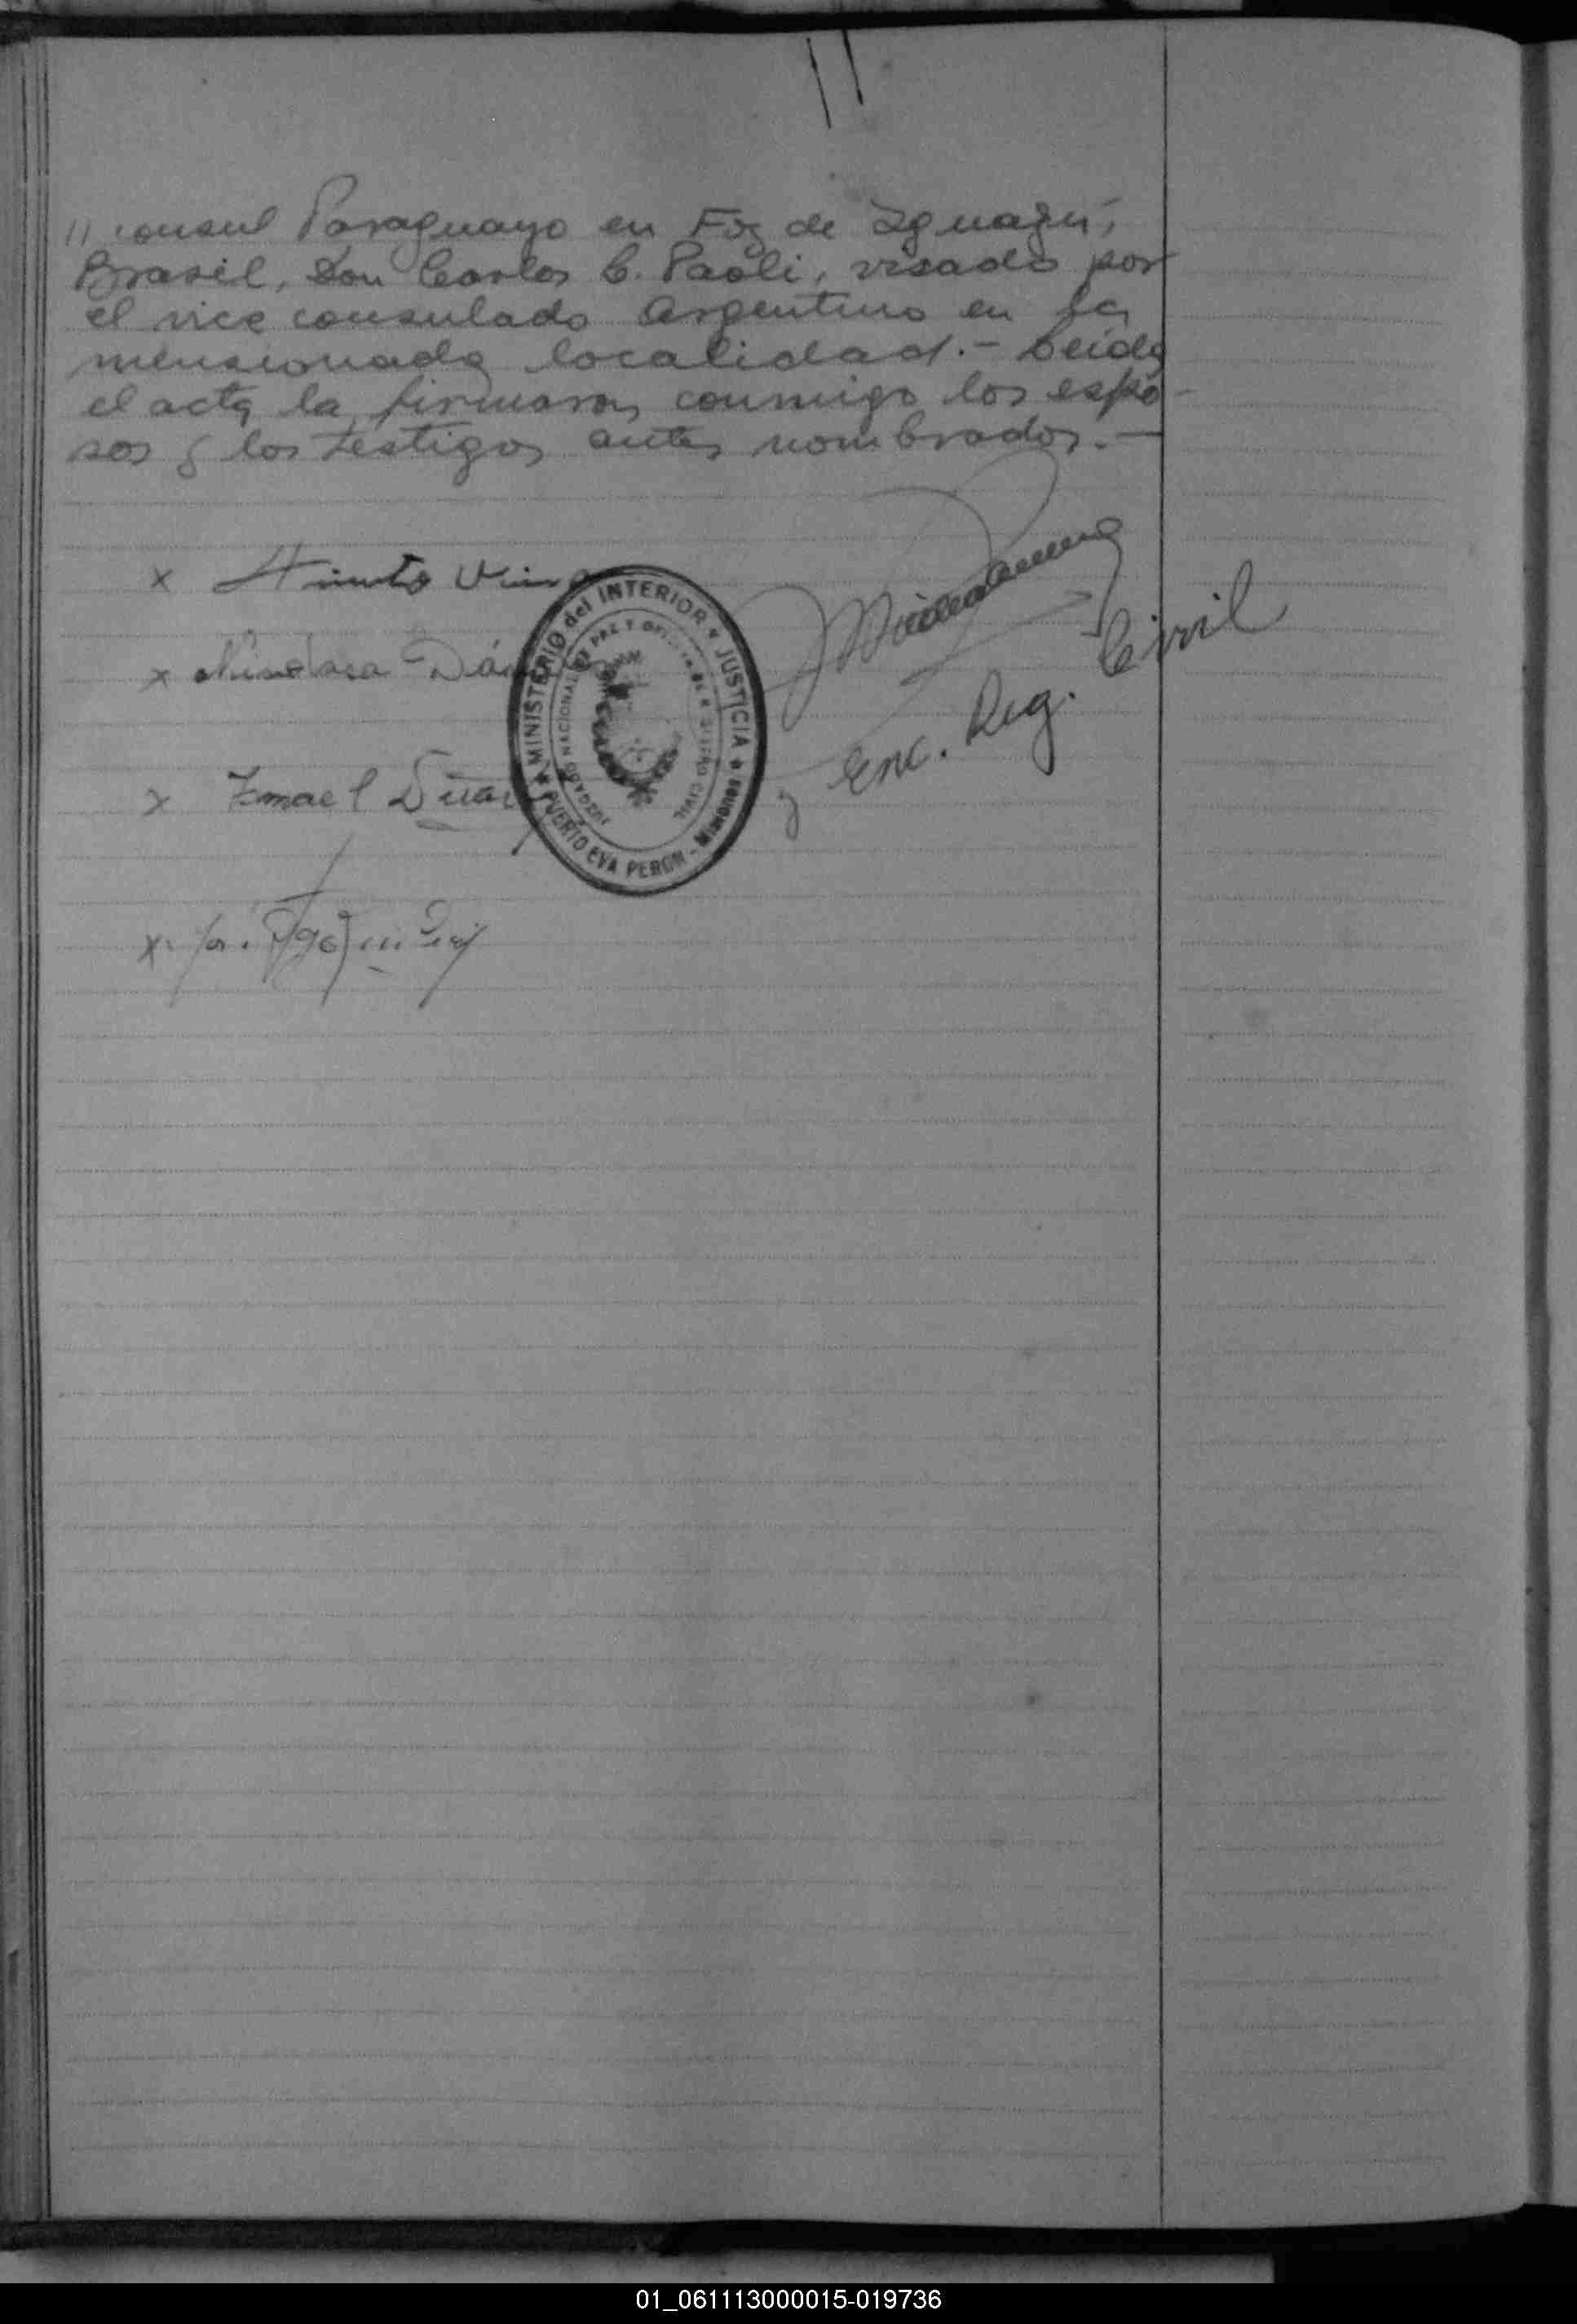 // consul Paraguayo en Foz de Iguazú,
Brasil, Don Carlos C. Paoli, visado por
el vice consulado Argentino en la
mensionada localidad.- Leida
el acta la firmaron conmigo los espo-
sos y los testigos antes nombrados.-
x
x
x Ismael
x
MINISTERIO del INTERIOR y JUSTICIA
JUZGADO NACIONAL DE PAZ Y OFICINA DEL REGISTRO CIVIL
PUERTO EVA PERON - Misiones
y Enc. Reg. Civil
01_061113000015-019736